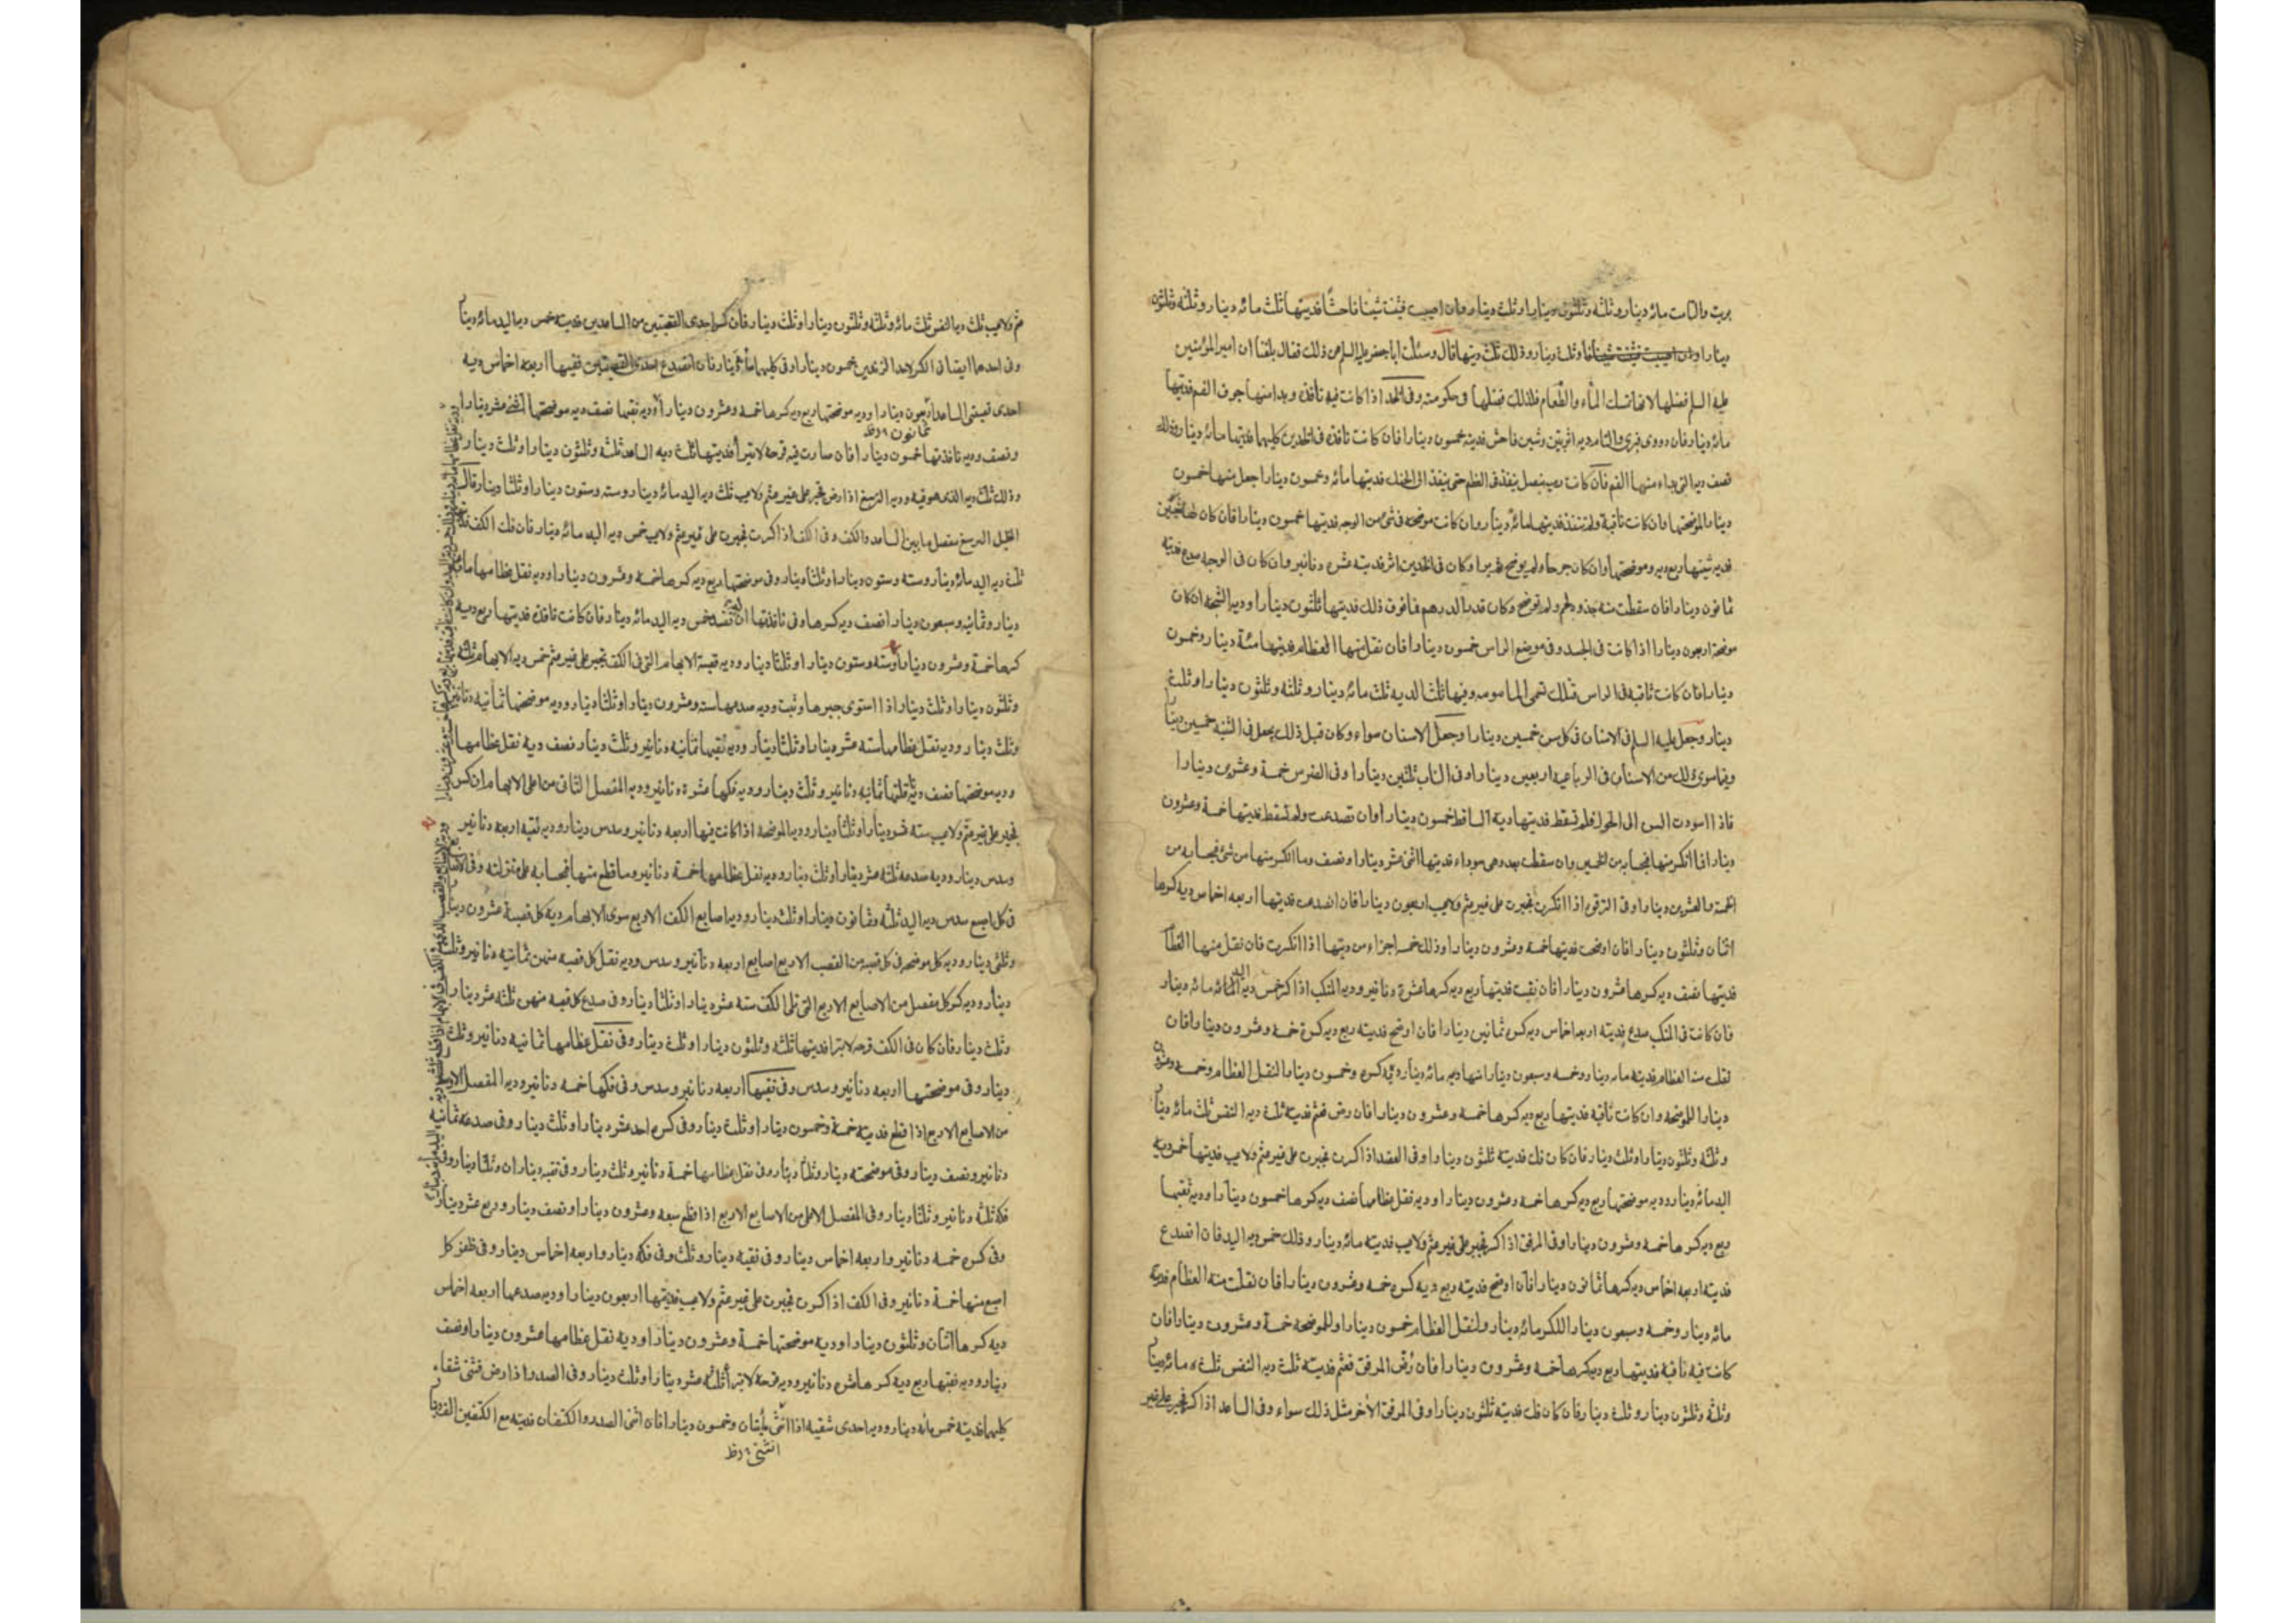 برئت والتامت مائه دينار وثلثه وثلثون دينارا وثلث دينار وان اصيبت فثنت شينا فاحشا فديتها ثلث مائه دينار وثلثه وثلثون
دينارا وثلث دينار وذلك ثلث ديتها قال وسئلت ابا جعفر عليه السلم عن ذلك فقال بلغنا ان امير المؤمنين
عليه السلم فضلها لانها تمسك الماء والطعام فلذلك فضلها فى حكومته وفى الخد اذا كانت فيه نافذه ويدا منها جوف الفم فديتها
مائه دينار فان دووى فبرئ والتام وبه اثر بين وشين فاحش فديته خمسون دينارا فان كانت نافذه فى الخدين كليهما فديتها مائه دينار وذلك
نصف ديه التى بداء منها الفم فان كانت رميه بنصل ينفذ فى العظم حتى ينفذ الى الحنك فديتها مائه وخمسون دينارا جعل منها خمسون
دينارا لموضحتها وان كانت ثاقبة ولم تنفذ فديتها مائه دينار وان كانت موضحه فى شئ من الوجه فديتها خمسون دينارا فان كان لها شين
فديه شينها ربع ديه موضحتها وان كان جرحا ولم يوضح ثم برا وكان فى الخدين اثر فديته عشره دنانير وان كان فى الوجه صدع فديته
ثمانون دينارا فان سقطت منه جذوه لحم ولم توضح وكان قدر الدرهم فما فوق ذلك فديتها ثلثون دينارا وديه الشجه ان كان
موضحة اربعون دينارا اذا كانت فى الجسد وفى موضع الراس خمسون دينارا فان نقل منها العظام فديتها مئة دينار وخمسون
دينارا فان كانت ثاقبه فى الراس فتلك تسمى المامومه وفيها ثلث الديه ثلث مائه دينار وثلثه وثلثون دينارا وثلث
دينار وجعل عليه السلم فى الاسنان فى كل سن خمسين دينارا وجعل الاسنان سواء وكان قبل ذلك يجعل فى الثنيه خمسين دينارا
وفيما سوى ذلك من الاسنان فى الرباعيه اربعين دينارا وفى الناب ثلثين دينارا وفى الضرس خمسة وعشرين دينارا
فاذا اسودت السن الى الحول فلم تسقط فديتها دية الساقط خمسون دينارا وان تصدعت ولم تسقط فديتها خمسة وعشرون
دينارا فما انكسر منها فبحسابه من الخمسين وان سقطت بعد وهى سوداء فديتها اثنى عشر دينارا ونصف وما انكسر منها من شئ فبحسابه من
الخمسة والعشرين دينارا وفى الترقوة اذا انكسرت فجبرت على غير عثم ولا عيب اربعون دينارا فان انصدعت فديتها اربعه اخماس ديه كسرها
اثنان وثلثون دينارا فان اوضحت فديتها خمسة وعشرون دينارا وذلك خمسه اجزاء من ديتها اذا انكسرت فان نقل منها العظام
فديتها نصف ديه كسرها عشرون دينارا فان نقبت فديتها ربع ديه كسرها عشرة دنانير وديه المنكب اذا كسر خمس ديه اليد مائه دينار
فان كانت فى المنكب صدع فديته اربعه اخماس ديه كسره ثمانين دينارا فان اوضح فديته ربع ديه كسره خمسة وعشرون دينارا فان
نقلت منه العظام فديته مائه دينار وخمسه وسبعون دينارا منها ديه مائه دينار ديه كسره وخمسون دينارا لنقل العظام وخمسه وعشرون
دينارا للموضحه وان كانت ناقبه فديتها ربع ديه كسرها خمسه وعشرون دينارا فان رض فعثم فديته ثلث ديه النفس ثلث مائه دينار
وثلثه وثلثون دينارا وثلث دينار فان كان فك فديته ثلثون دينارا وفى العضد اذا كسرت فجبرت على غير عثم ولا عيب فديتها خمس ديه
اليد مائه دينار وديه موضحتها ربع ديه كسرها خمسه وعشرون دينارا وديه نقل عظامها نصف ديه كسرها خمسون دينارا وديه نقبها
ربع ديه كسرها خمسه وعشرون دينارا وفى المرفق اذا كسر فجبر على غير عثم ولا عيب فديته مائه دينار وذلك خمس ديه اليد فان انصدع
فديته اربعه اخماس ديه كسرها ثمانون دينارا فان اوضح فديته ربع ديه كسره خمسه وعشرون دينارا فان نقلت منه العظام فديته
مائه دينار وخمسه وسبعون دينارا للكسر مائه دينار ولنقل العظام خمسون دينارا وللموضحه خمسة وعشرون دينارا فان
كانت فيه ناقبه فديتها ربع ديه كسرها خمسه وعشرون دينارا فان رض المرفق فعثم فديته ثلث ديه النفس ثلث مائه دينار
وثلثه وثلثون دينار وثلث دينار فان كان فك فديته ثلثون دينارا وفى المرفق الأخر مثل ذلك سواء وفى الساعد اذا كسر فجبر على غير
عثم ولا عيب ثلث ديه النفس ثلث مائه وثلثه وثلثون دينارا وثلث دينار فان كسر احدى القصبتين من الساعدين فديته خمس ديه اليد مائه دينار
وفى احدهما ايضا فى الكسر لاحد الزندين خمسون دينارا وفى كليهما مائة دينار فان انصدع احدى القصبتين ففيها اربعه اخماس ديه
احدى قصبتى الساعد اربعون دينارا وديه موضحتها ربع ديه كسرها خمسه وعشرون دينارا وديه نقبها نصف ديه موضحتها اثنى عشر دينارا
ثمانون
ونصف وديه نافذتها خمسون دينارا فان صارت فيه قرحه لا تبرأ فديتها ثلث ديه الساعد ثلثه وثلثون دينارا وثلث دينار
وذلك ثلث ديه الذى هو فيه وديه الرسغ اذا رض فجبر على غير عثم ولا عيب ثلث ديه اليد مائه دينار وسته وستون دينارا وثلثا دينار قال
الخليل الرسغ مفصل ما بين الساعد والكف وفى الكف اذا كسرت فجبرت على غير عثم ولا عيب خمس ديه اليد مائه دينار فان فك الكف
ثلث ديه اليد مائه دينار وسته وستون دينارا وثلثا دينار وفى موضحتها ربع ديه كسرها خمسه وعشرون دينارا وديه نقل عظامها مائه
دينار وثمانيه وسبعون دينارا نصف ديه كسرها وفى نافذتها ان لم تنسد خمس ديه اليد مائه دينار فان كانت نافذه فديتها ربع ديه
كسرها خمسة وعشرون دينارا وسته وستون دينارا وثلثا دينار وديه قصبة الابهام التى فى الكف تجبر على غير عثم خمس ديه الابهام ثلثه
وثلثون دينارا وثلث دينار اذا استوى جبرها وثبت وديه صدعها سته وعشرون دينارا وثلثا دينار وديه موضحتها ثمانيه دنانير
وثلث دينار وديه نقل عظامها سته عشر دينارا وثلثا دينار وديه نقبها ثمانيه دنانير وثلث دينار نصف ديه نقل عظامها
وديه موضحتها نصف ديه ناقلتها ثمانيه دنانير وثلث دينار وديه فكها عشرة دنانير وديه المفصل الثانى من اعلى الابهام ان كسر
فجبر على غير عثم ولا عيب سته عشر دينارا وثلثا دينار وديه الموضحه اذا كانت فيها اربعه دنانير وسدس دينار وديه نقبه اربعه دنانير
وسدس دينار وديه صدعه ثلثه عشر دينارا وثلث دينار وديه نقل عظامها خمسة دنانير وما قطع منها فبحسابه على منزلته وفى الاصابع
فى كل اصبع سدس ديه اليد ثلثه وثمانون دينارا وثلث دينار وديه اصابع الكف الاربع سوى الابهام ديه كل قصبة عشرون دينار
وثلثى دينار وديه كل موضحه فى كل قصبه من القصب الاربع اصابع اربعه دنانير وسدس وديه نقل كل قصبه منهن ثمانيه دنانير وثلث
دينار وديه كسر كل مفصل من الاصابع الاربع التى تلى الكف سته عشر دينارا وثلثا دينار وفى صدع كل قصبه منهن ثلثه عشر دينار
وثلث دينار فان كان فى الكف قرحه لا تبرا فديتها ثلثه وثلثون دينارا وثلث دينار وفى نقل عظامها ثمانيه دنانير وثلث
دينار وفى موضحتها اربعه دنانير وسدس وفى نقبها اربعه دنانير وسدس وفى فكها خمسه دنانير وديه المفصل الاوسط
من الاصابع الاربع اذا قطع فديته خمسة وخمسون دينارا وثلث دينار وفى كسره احد عشر دينارا وثلث دينار وفى صدعه ثمانيه
دنانير ونصف دينار وفى موضحته دينار وثلثا دينار وفى نقل عظامها خمسة دنانير وثلث دينار وفى نقبه ديناران وثلثا دينار وفى
فكه ثلثه دنانير وثلثا دينار وفى المفصل الاعلى من الاصابع الاربع اذا قطع سبعه وعشرون دينارا ونصف دينار وربع عشر دينار
وفى كسره خمسه دنانير واربعه اخماس دينار وفى نقبه دينار وثلث وفى فكه دينار واربعه اخماس دينار وفى ظفر كل
اصبع منها خمسة دنانير وفى الكف اذا كسرت فجبرت على غير عثم ولا عيب فديتها اربعون دينارا وديه صدعها اربعه اخماس
ديه كسرها اثنان وثلثون دينارا وديه موضحتها خمسة وعشرون دينارا وديه نقل عظامها عشرون دينارا ونصف
دينار وديه نقبها ربع ديه كسرها عشره دنانير وديه قرحه لا تبرأ ثلثه عشر دينارا وثلث دينار وفى الصدر اذا رض فثنى شقاه
كليهما فديته خمس مائه دينار وديه احدى شقيه اذا انثنى مأيتان وخمسون دينارا فان اثنى الصدر والكتفان فديته مع الكتفين الف دينار
انثنى